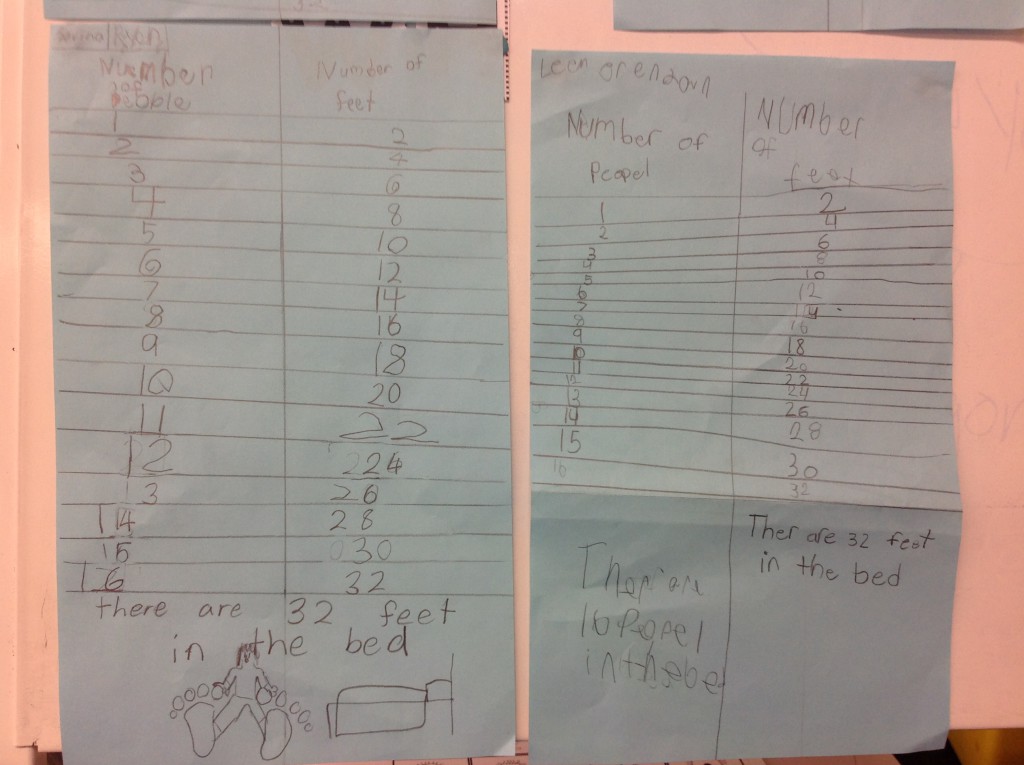 Ryan
Number Number of
of feet
people
1 2
2 4
3 6
4 8
5 10
6 12
7 14
8 16
9 18
10 20
11 22
12 224
13 26
14 28
15 030
16 32
there are 32 feet
in the bed
NUMber of NUMber
Peapel of
feet
1 2
2 4
3 6
4 8
5 10
6 12
7 14
8 16
9 18
10 20
11 22
12 24
13 26
14 28
15 30
16 32
Ther are 32 feet
in the bed
16 Papel
in the be